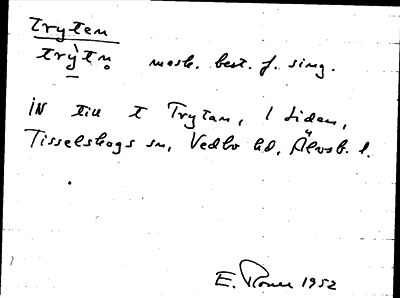 Tryten
trỳtn̥ mask. best. f. sing.
IN till t Trytan, i Liden,
Tisselskogs sn, Vedbo hd, Älvsb. l.
E. 1952